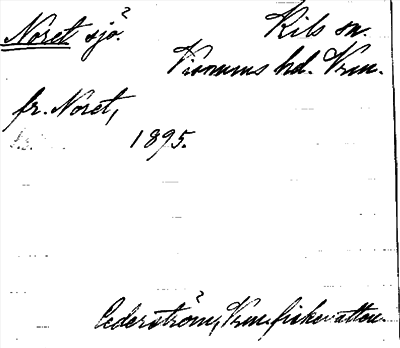 Noret sjö? Kils sn.
Visnums hd. Vrm.
fr. Noret,
1895.
Cederström, Vrm. fiskevatten